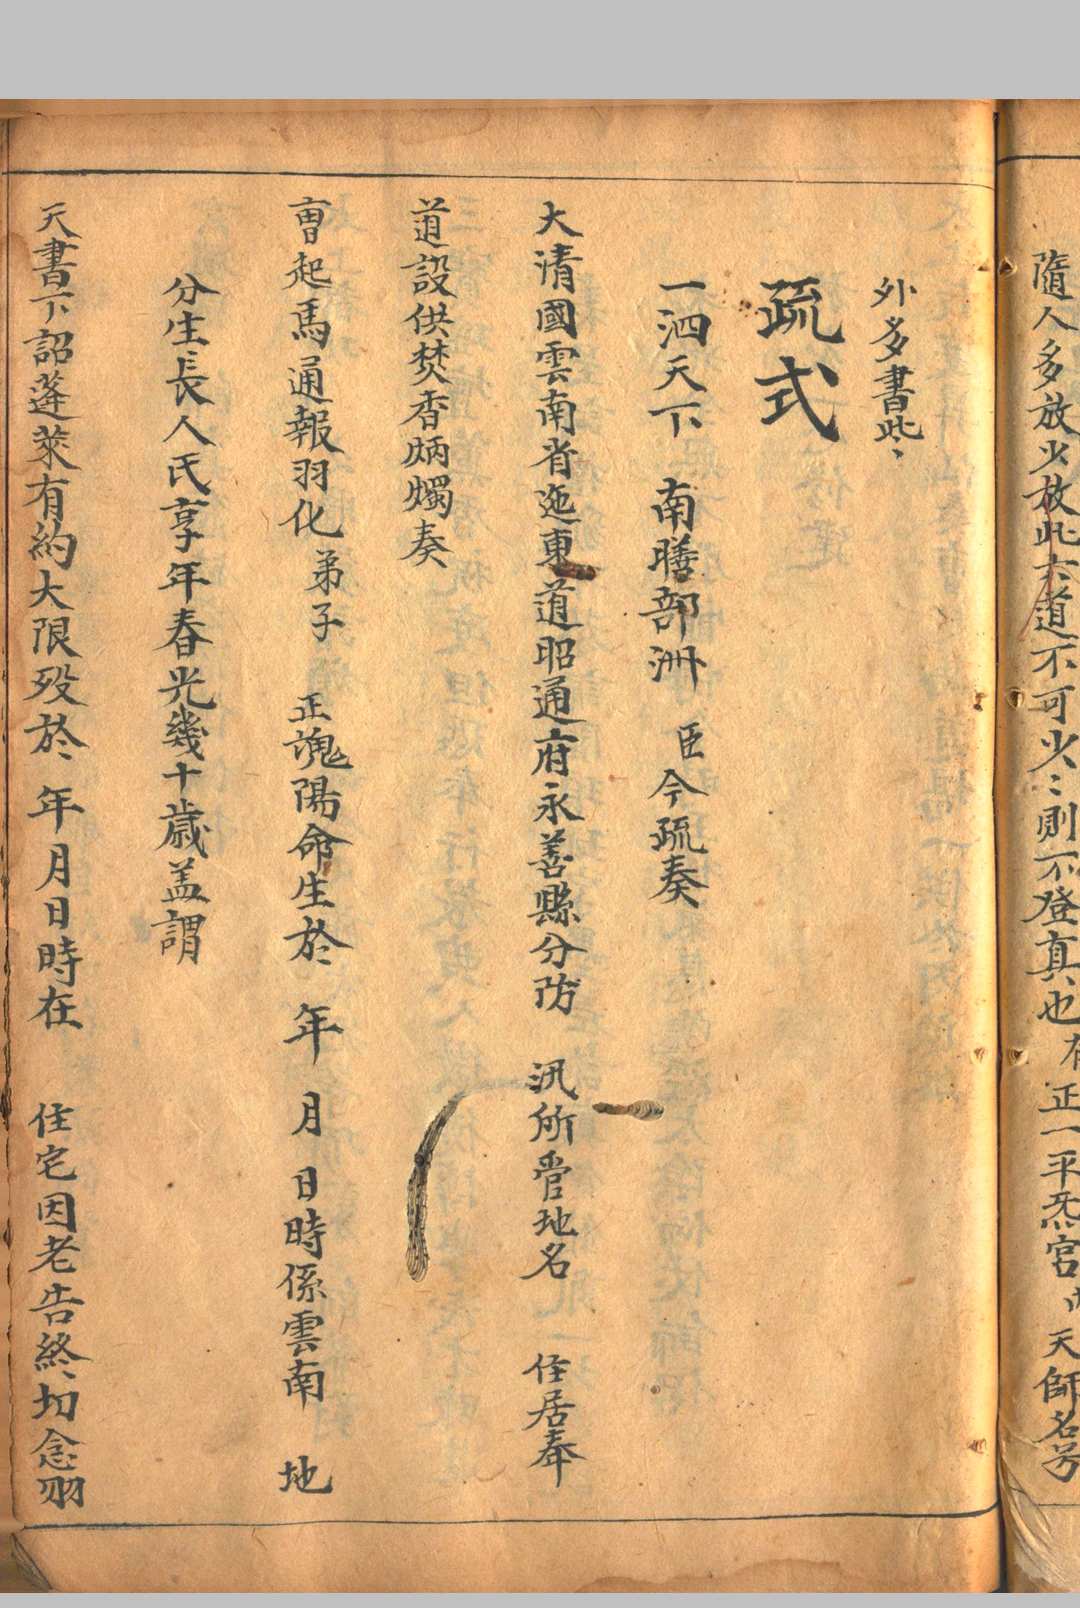 隨人多放火放此六道不可少〻則不登真也 有正一平炁宮内天師名号
外多書此〻
疏式
一泗天下 南贍部洲 臣今疏奏
大清國雲南省迤東道昭通府永善縣分防 汛所管地名 住居奉
道設供焚香炳燭奏
曺起馬通報羽化 弟子 正魂陽命生於 年 月 日時係雲南 地
分生長人氏享年春光幾十歲盖謂
天書下詔蓬萊有約大限歿於 年月日時在 住宅因老告終切念羽